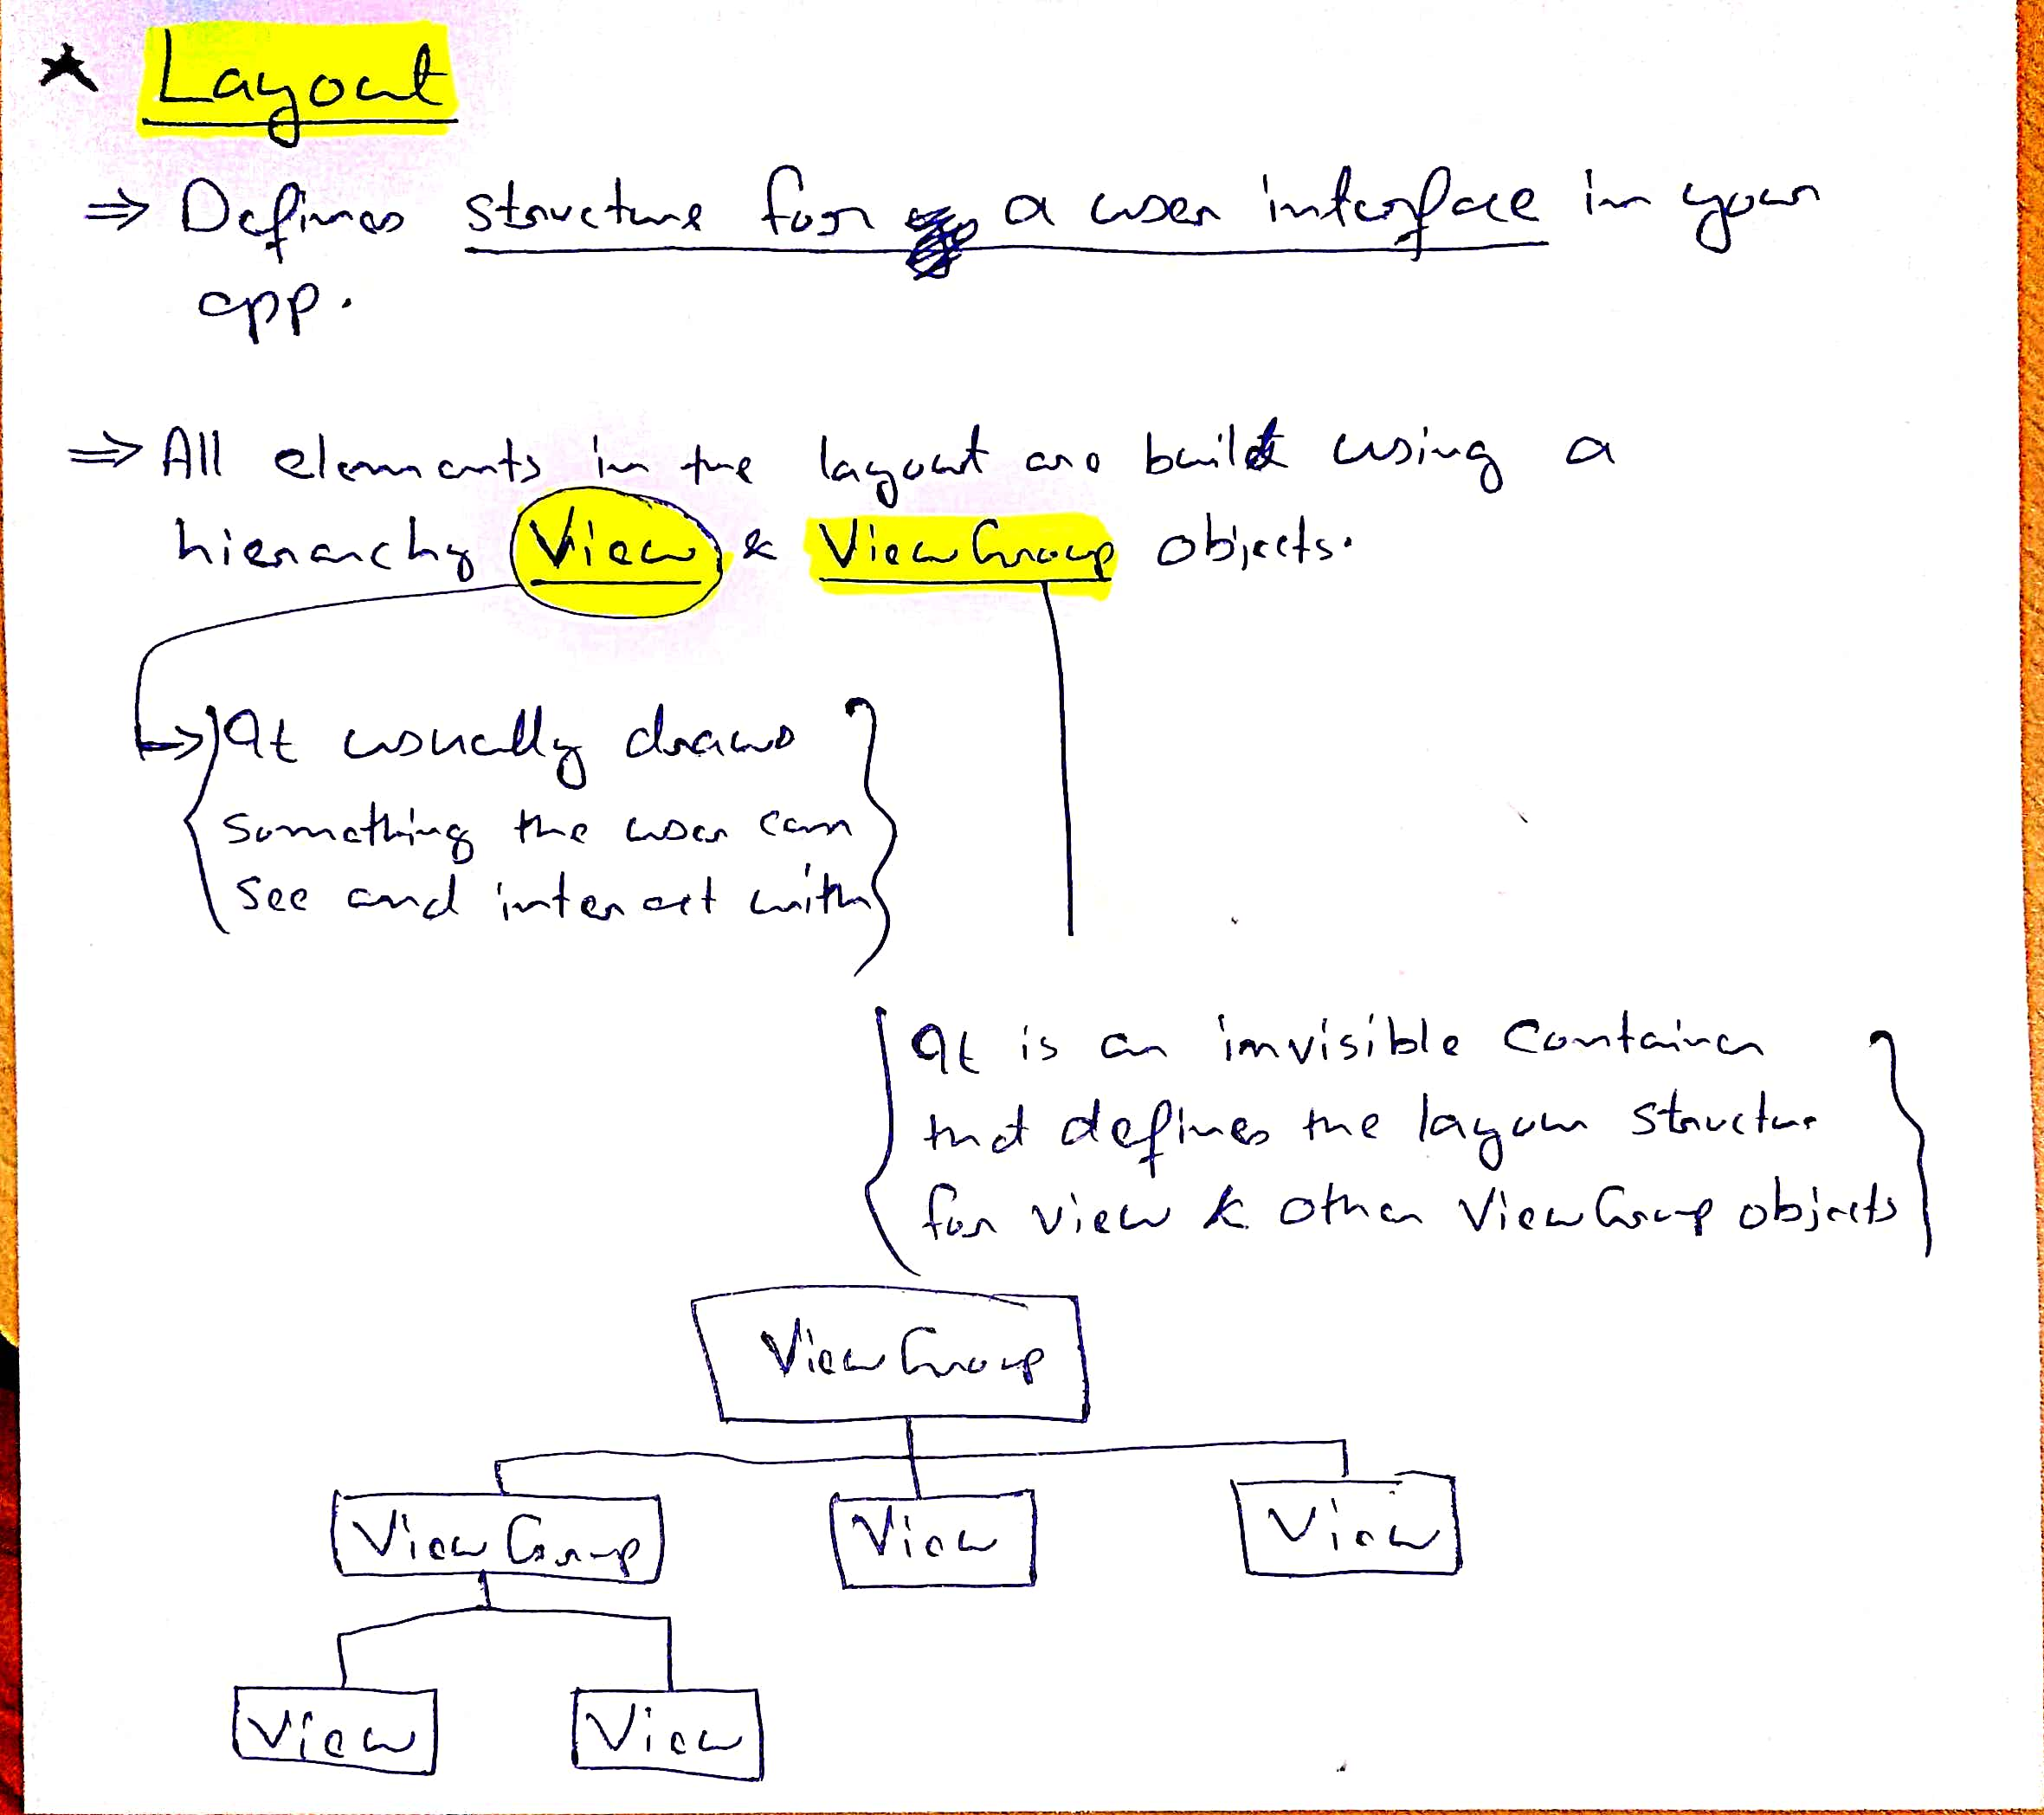 ★ Layout
⇒ Defines structure for a user interface in your
app.
⇒ All elements in the layout are built using a
hierarchy View & ViewGroup objects.
It usually draws
something the user can
see and interact with
It is an invisible container
that defines the layou structur
for view & other ViewGroup objects
ViewGroup
ViewGroup View View
View View